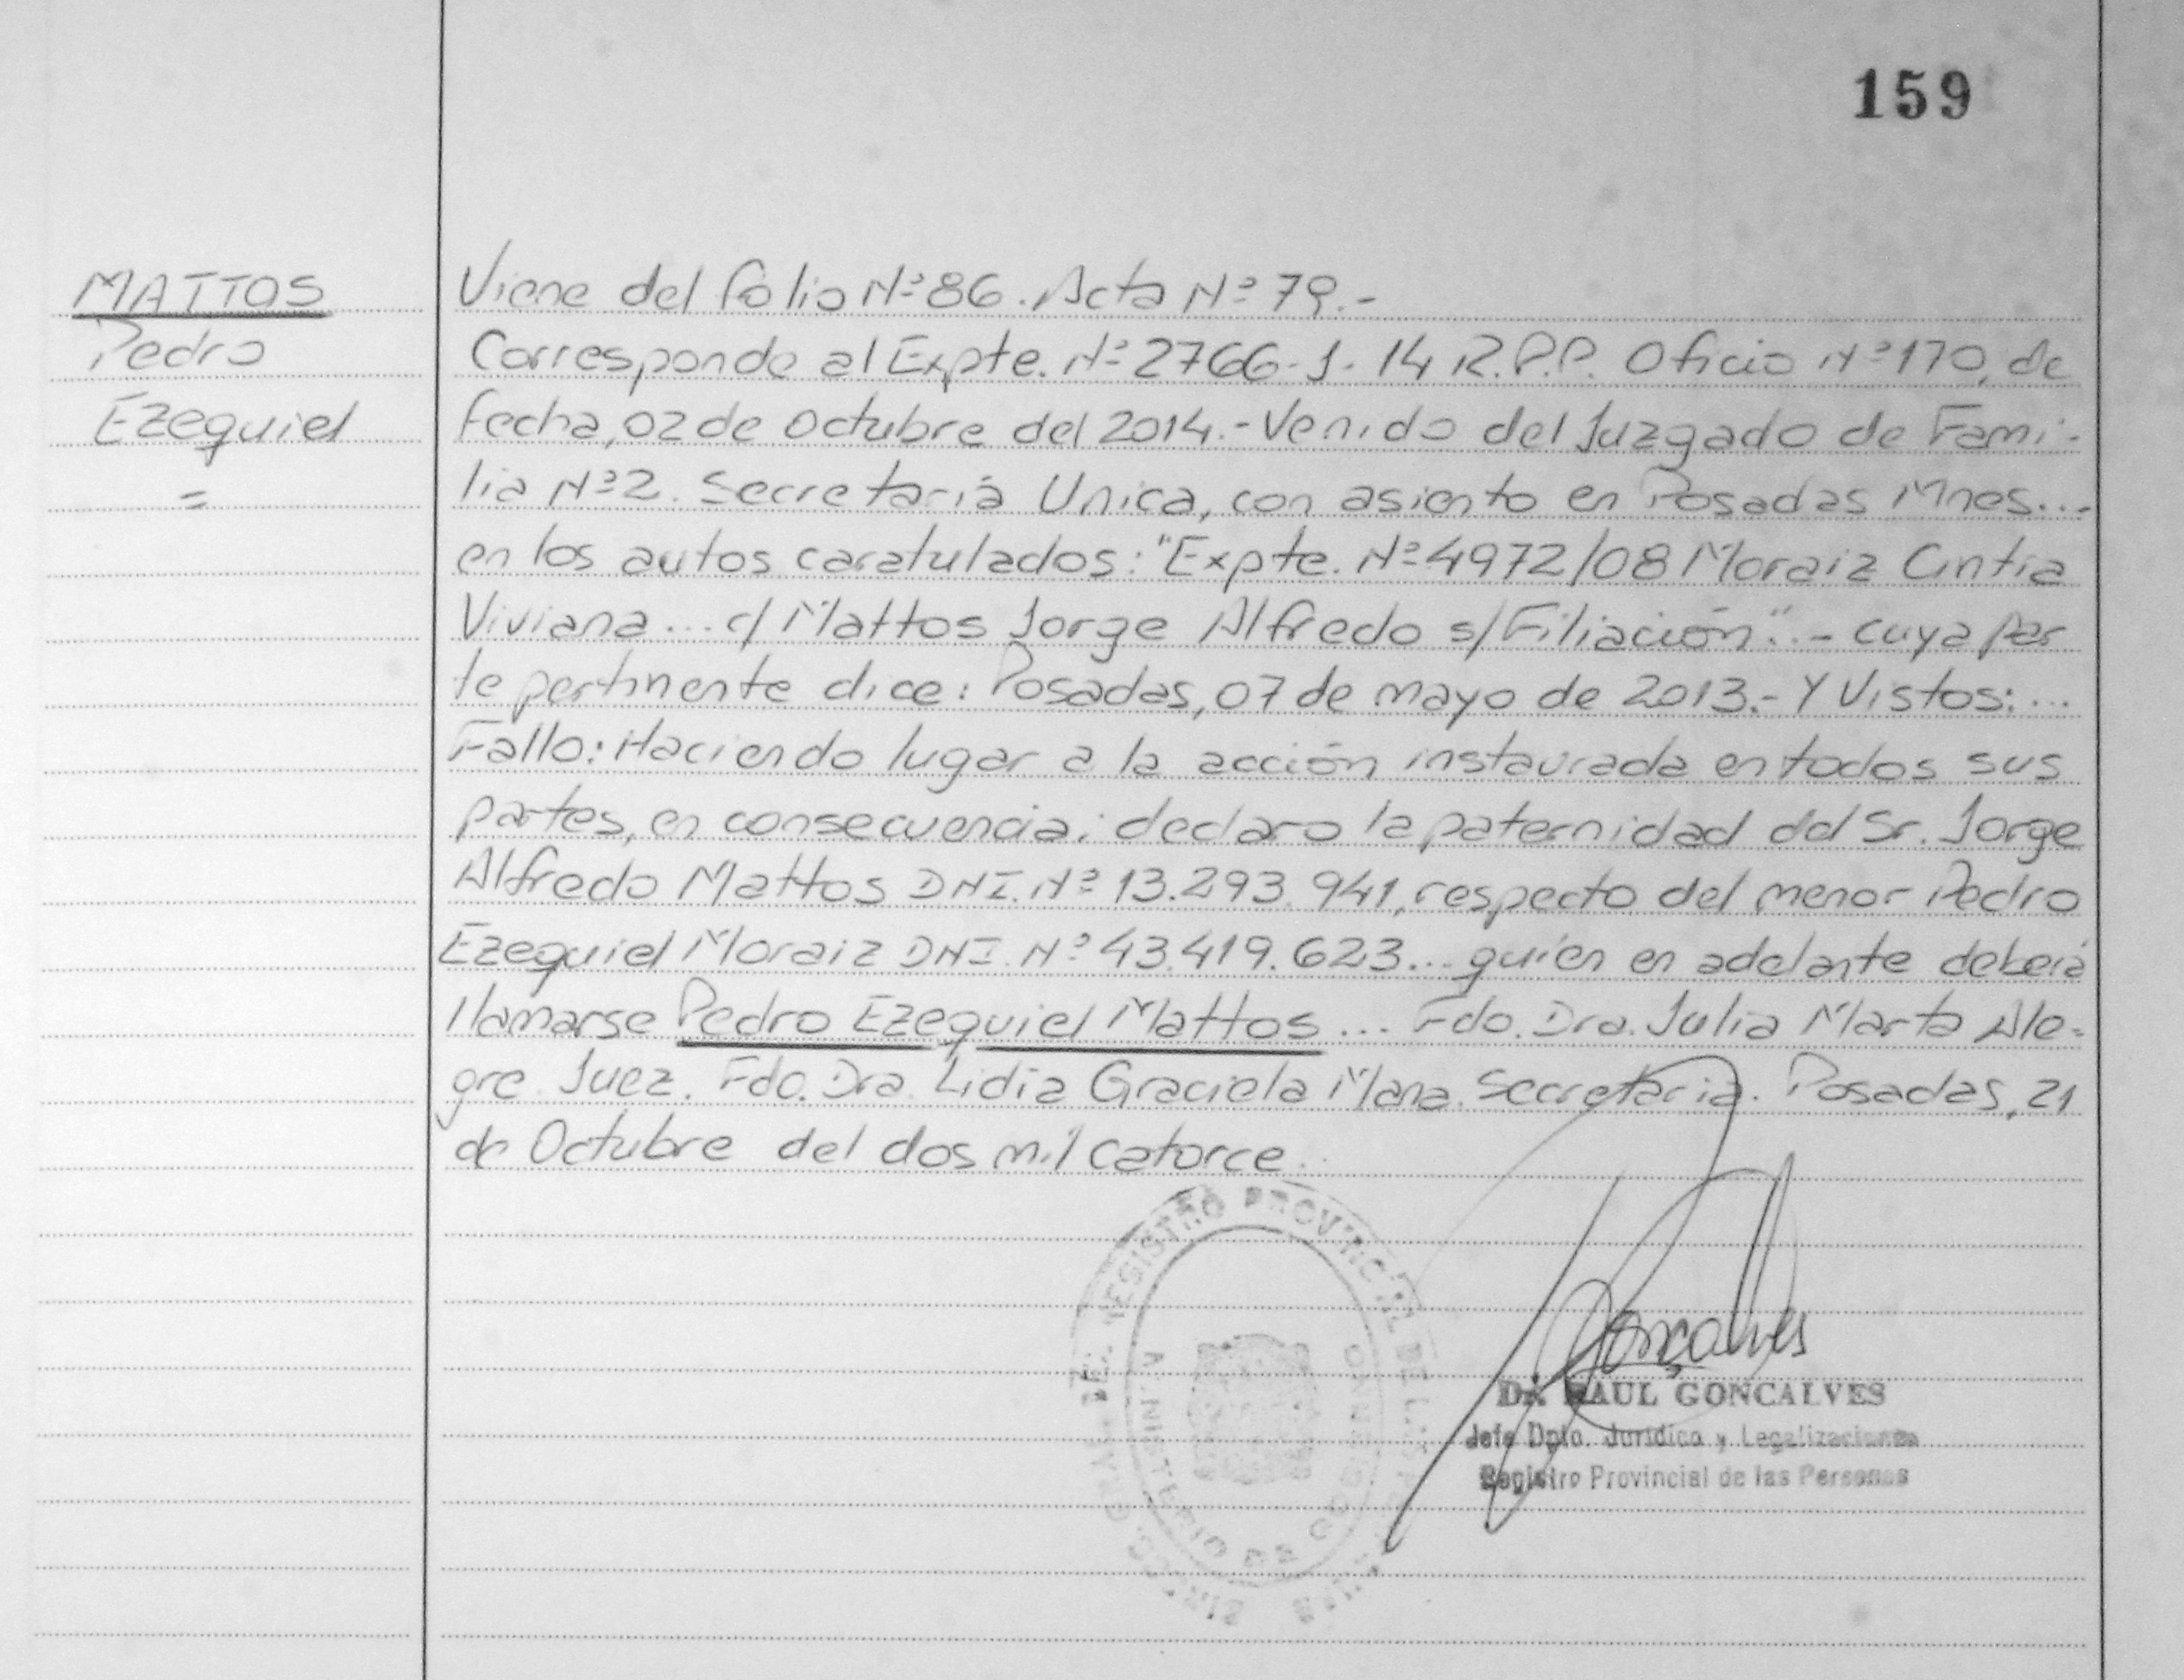 159
MATTOS
Pedro
Ezequiel
=
Viene del folio Nº 86. Acta Nº 79.-
Corresponde al Expte. Nº 2766-J-14 R.P.P. Oficio Nº 170, de
fecha, 02 de Octubre del 2014.- Venido del Juzgado de Fami-
lia Nº 2. Secretaría Unica, con asiento en Posadas Mnes...-
en los autos caratulados: "Expte. Nº 4972/08 Moraiz Cintia
Viviana... c/ Mattos Jorge Alfredo s/ Filiación".- cuya par
te pertinente dice: Posadas, 07 de mayo de 2013.- Y Vistos:...
Fallo: Haciendo lugar a la acción instaurada en todos sus
partes, en consecuencia: declaro la paternidad del Sr. Jorge
Alfredo Mattos DNI. Nº 13.293.941, respecto del menor Pedro
Ezequiel Moraiz DNI. Nº 43.419.623... quien en adelante deberá
llamarse Pedro Ezequiel Mattos... Fdo. Dra. Julia Marta Ale-
gre. Juez. Fdo. Dra. Lidia Graciela Mana. Secretaria. Posadas, 21
de Octubre del dos mil catorce.
REGISTRO PROVINCIAL DE LAS
MINISTERIO DE GOBIERNO
Goncalves
Dr. RAUL GONCALVES
Jefe Dpto. Jurídico y Legalizaciones
Registro Provincial de las Personas